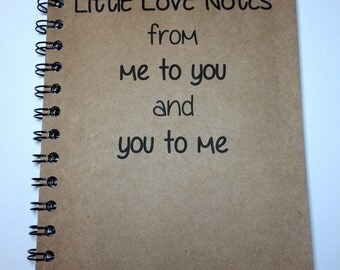 Little Love Notes
from
Me to you
and
you to Me